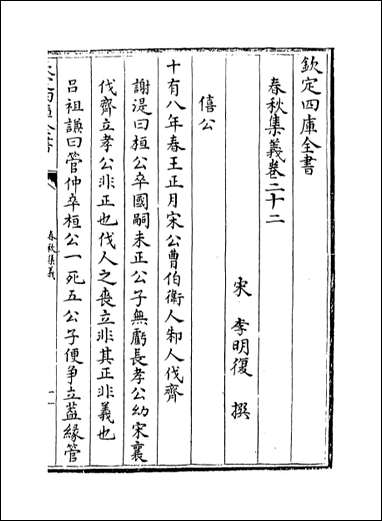 欽定四庫全書
春秋集義卷二十二
宋 李明復 撰
僖公
十有八年春王正月宋公曹伯衛人邾人伐齊
謝湜曰桓公卒國嗣未正公子無虧長孝公幼宋襄
伐齊立孝公非正也伐人之喪立非其正非義也
呂祖謙曰管仲卒桓公一死五公子便爭立蓋緣管
春秋集義